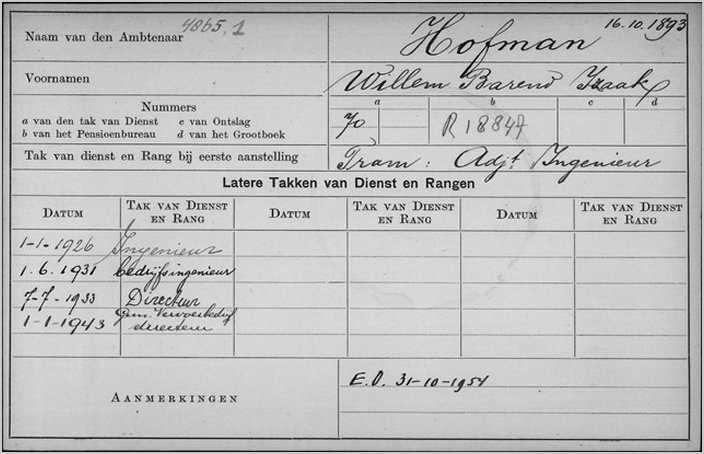 4865,1
16.10.1893
Naam van den Ambtenaar Hofman
Voornamen Willem Barend Izaak
Nummers
a b c d
a van den tak van Dienst c van Ontslag
b van het Pensioenbureau d van het Grootboek
70 R 18847
Tak van dienst en Rang bij eerste aanstelling Tram: Adjt. Ingenieur
Latere Takken van Dienst en Rangen
Datum Tak van Dienst en Rang Datum Tak van Dienst en Rang Datum Tak van Dienst en Rang
1-1-1926 Ingenieur
1.6.1931 bedrijfsingenieur
7-7-1933 Directeur
1-1-1943 Gem. Vervoerbedrijf
directeur
Aanmerkingen
E.O. 31-10-1954